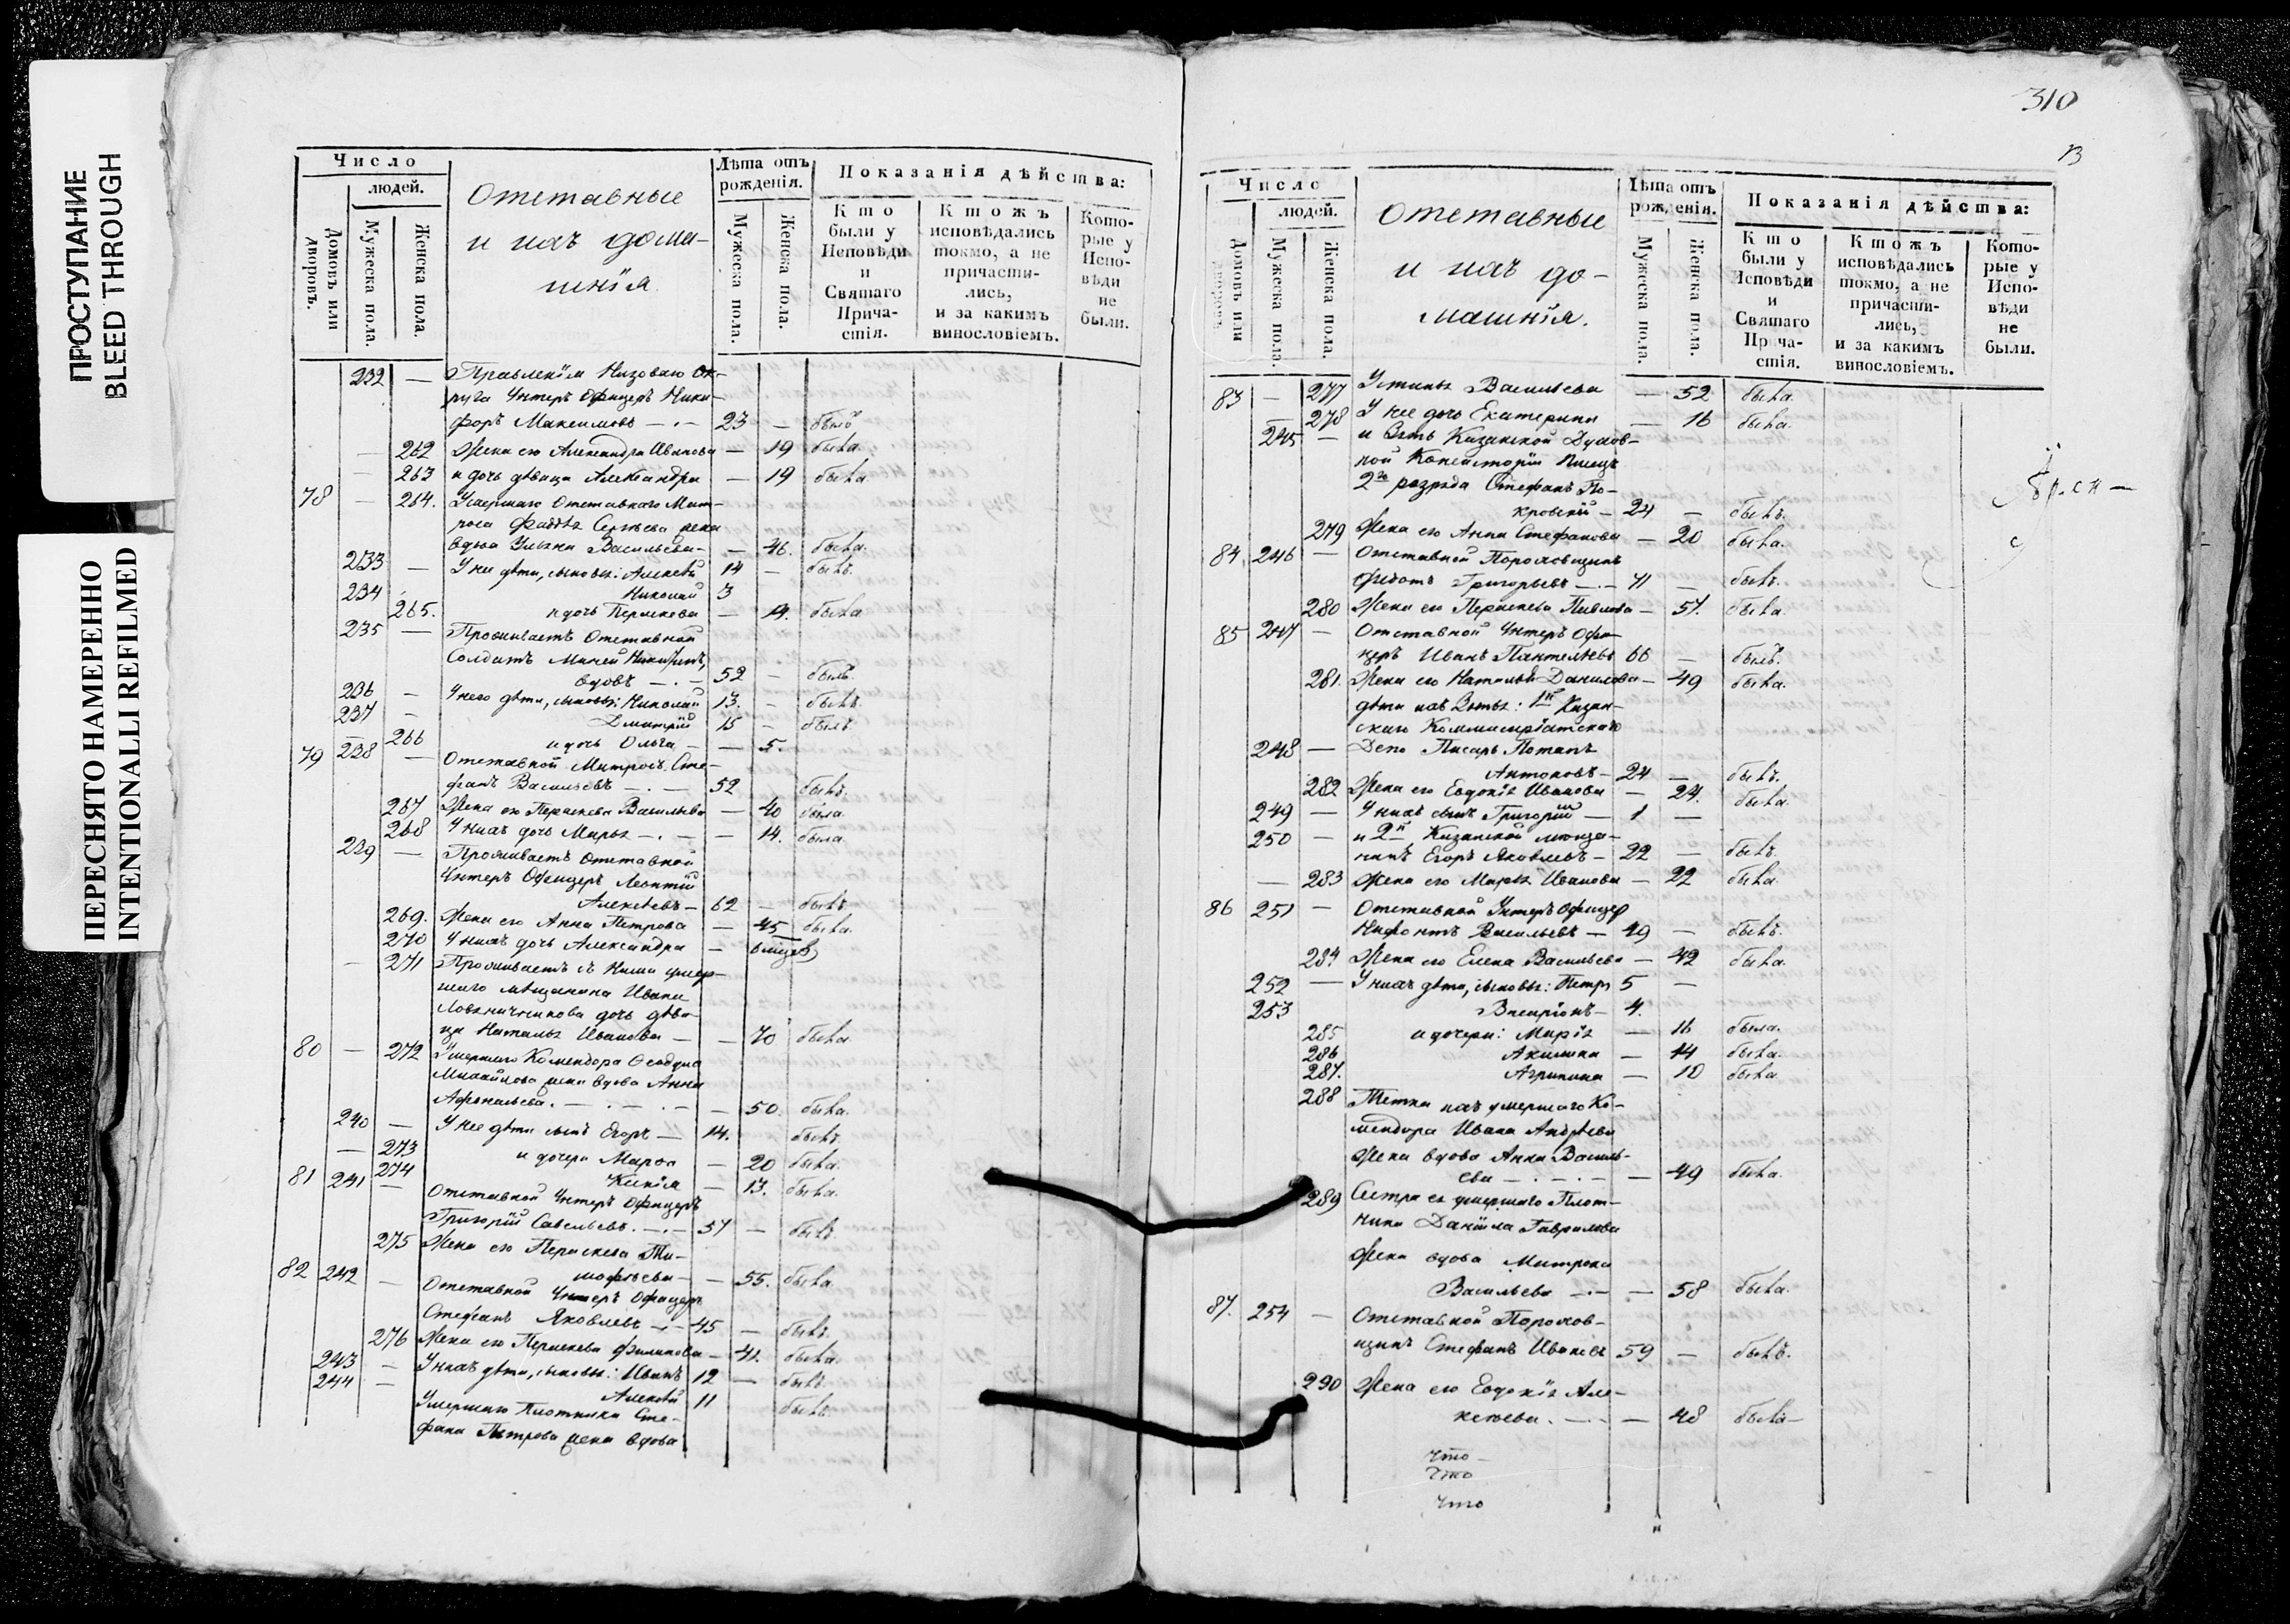 ПРОСТУПАНИЕ
BLEED THROUGH
ПЕРЕСНЯТО НАМЕРЕННО
INTENTIONALLI REFILMED
Число
людей.
Домовъ или дворовъ.
Мужеска пола.
Женска пола.
Отставные
и ихъ дома-
шнія
Лѣта отъ рожденія.
Мужеска пола.
Женска пола.
Показанія дѣйства:
Кто были у Исповѣди и Святаго Прича-стія.
Ктожъ исповѣдались токмо, а не причасти-лись, и за какимъ винословіемъ.
Кото-рые у Испо-вѣди не были.
232 — Правленія Низоваго Ок-
руга Унтеръ Офицеръ Ники-
форъ Максимовъ — 23 — былъ
— 262 Жена его Александра Иванова — 19 была
— 263 и дочь дѣвица Александра — 19 была
78 — 264. Умершаго Отставнаго Мат-
роса Сергѣева жена
вдова Васильева — — 46. была.
233 — У нее дѣти, сыновья: Алексѣй 14 — былъ.
234 Николай 3
265. и дочь Пераскева — была
235 — Проживаетъ Отставной
Солдатъ Миней Никитинъ,
вдовъ — 52 — былъ.
236 — У него дѣти, сыновья: Николай 13. — былъ.
237 — Дмитрій 15 — былъ.
266 и дочь Ольга — — 5.
79 238 — Отставной Матросъ Сте-
фанъ Васильевъ — 52 былъ.
267 Жена его Пераскева Васильева — 40 была
268 У нихъ дочь Марья — — 14. была
239 — Проживаетъ Отставной
Унтеръ Офицеръ Леонтій
Алексѣевъ — 62 — былъ.
269. Жена его Анна Петрова — 45 была.
270 У нихъ дочь Александра — 6 мѣсяц.
— 271 Проживаетъ съ ними умер-
шаго мѣщанина Ивана
дочь дѣви-
ца Наталья Иванова — — 70 была
80 — 272 Умершаго Комендора Ѳеодора
Михайлова жена вдова Анна
Афонасьева. — — 50. была.
240 — У нее дѣти сынъ Егоръ — 14. былъ.
— 273 и дочери Марѳа — 20 была.
274 — 13. была.
81 241 — Отставной Унтеръ Офицеръ
Григорій Савельевъ. — 57 — былъ.
275 Жена его Пераскева Ти-
мофѣева — — 55. была.
82 242 — Отставной Унтеръ Офицеръ
Стефанъ Яковлевъ — 45 — былъ.
276 Жена его Пераскева Филипова — 41. была.
243 — У нихъ дѣти, сыновья: Иванъ 12 — былъ.
244 — Алексѣй 11 былъ.
Умершаго Плотника Сте-
фана Петрова жена вдова
310
Число
людей.
Домовъ или дворовъ.
Мужеска пола.
Женска пола.
Отставные
и ихъ до-
машнія.
Лѣта отъ рожденія.
Мужеска пола.
Женска пола.
Показанія дѣйства:
Кто были у Исповѣди и Святаго Прича-стія.
Ктожъ исповѣдались токмо, а не причасти-лись, и за какимъ винословіемъ.
Кото-рые у Испо-вѣди не были.
83 — 277 Устинья Васильева — 52 была.
— 278 У нее дочь Екатерина — 16 была.
245 — и Зять Казанской Духов-
ной Консисторіи Писецъ
2го разряда Стефанъ По-
кровскій — 24 — былъ.
279 Жена его Анна Стефанова — 20 была.
84. 246 — Отставной Пороховщикъ
Федотъ Григорьевъ — 71 — былъ.
280 Жена его Пераскева Павлова — 57. была.
85 247 — Отставной Унтеръ Офи-
церъ Иванъ Пантелѣевъ 66 — былъ.
281. Жена его Наталья Данилова — 49 была.
дѣти ихъ Зять: 1й Казан-
скаго Коммисаріатскаго
248 — Депо Писарь Потапъ
Антоновъ — 24 — былъ.
282 Жена его Евдокія Иванова — 24. была.
249 — У нихъ сынъ Григорій — 1 —
250 — и 2й Казанской мѣща-
нинъ Егоръ Яковлевъ — 22 — былъ.
— 283 Жена его Марья Иванова — 22 была.
86 251 — Отставной Унтеръ Офицер
Нифонтъ Васильевъ — 49 — былъ.
284 Жена его Елена Васильева — 42 была.
252 — У нихъ дѣти, сыновья: Петръ 5 —
253 — 4.
285 и дочери: Марія — 16 была.
286 Акилина — 14 была.
287. Агрипина — 10 была
288 Тетка ихъ умершаго Ко-
мендора Ивана Андрѣева
жена вдова Анна Василь-
ева — — 49 была.
289 Сестра ея умершаго Плот-
ника Даніила Гаврилова
жена вдова Матрона
Васильева — — 58 была.
87. 254 — Отставной Порохов-
щикъ Стефанъ Ивановъ 59 — былъ.
290 Жена его Евдокія Але-
ксѣева. — — 48 была —
что —
что
что